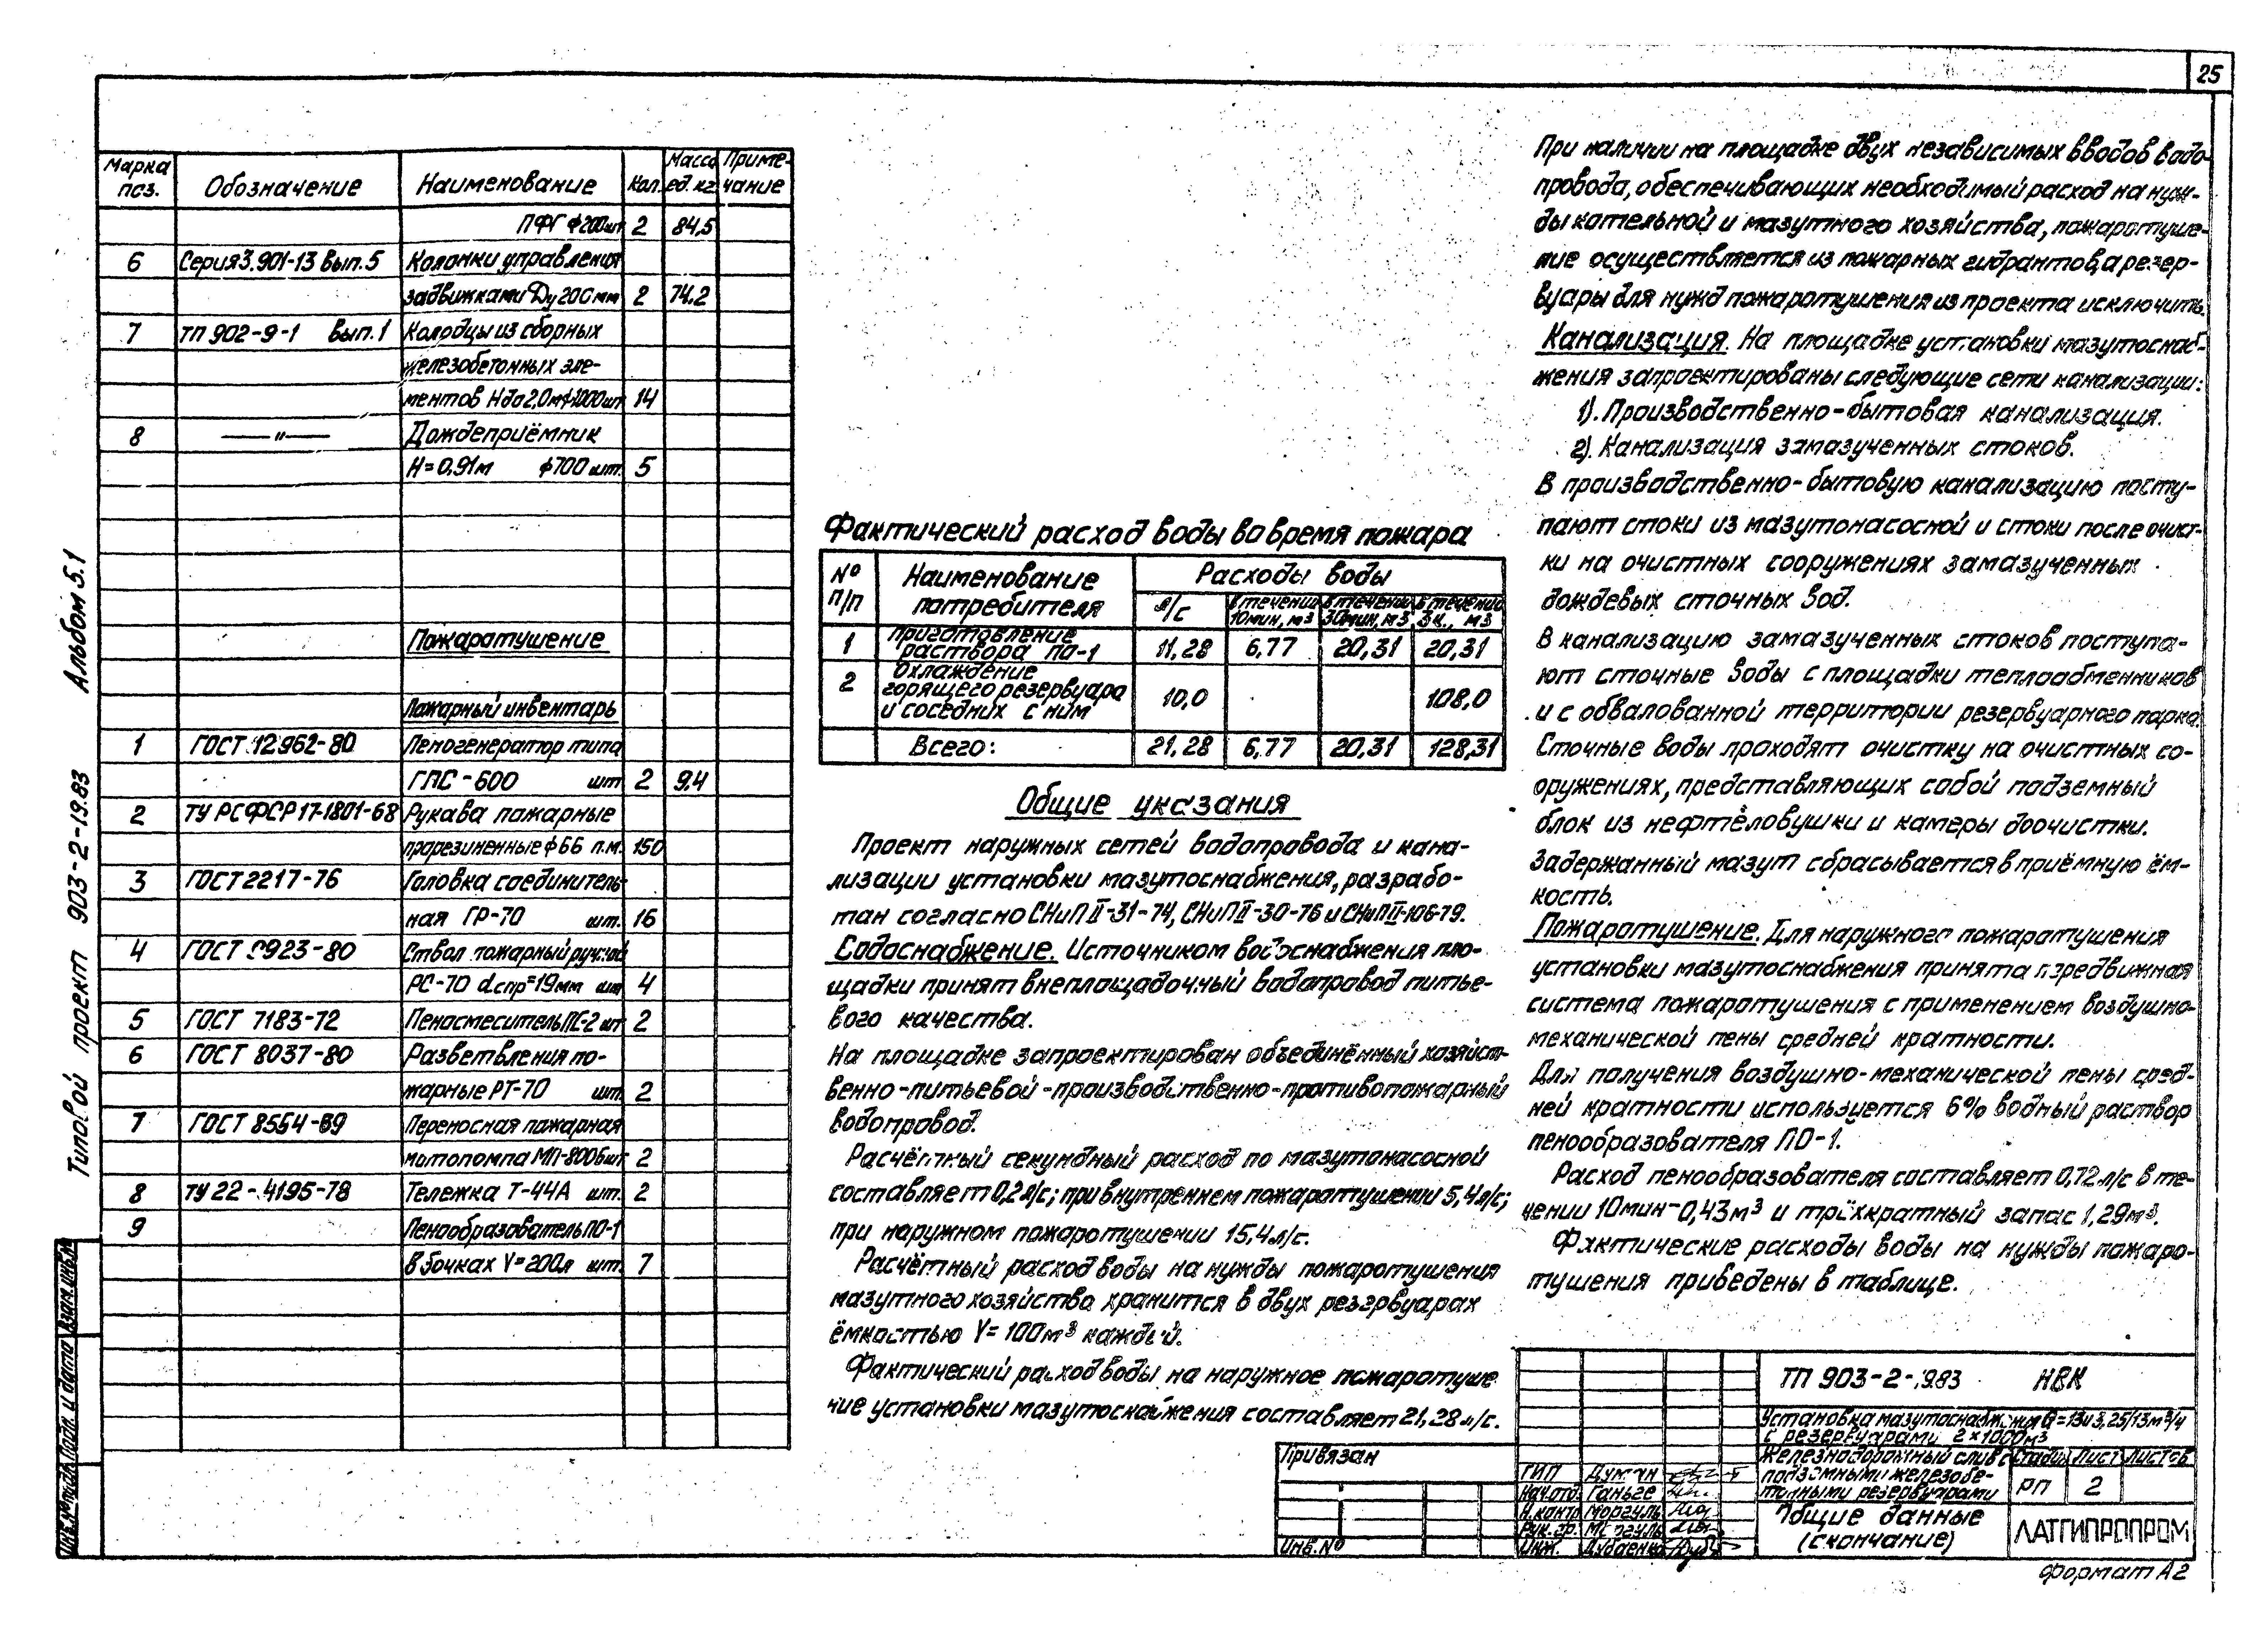 25
Марка поз. Обозначение Наименование Кол. Масса ед. кг. Приме-чание
ПФГ ф200 шт 2 84,5
6 Серия 3.901-13 вып.5 Колонки управления
задвижками Ду 200мм 2 74.2
7 ТП 902-9-1 вып.1 Колодцы из сборных
железобетонных эле-
ментов Н до 2,0м ф1000шт 14
8 —"— Дождеприёмник
Н=0,91м ф700 шт. 5
Пожаротушение
Пожарный инвентарь
1 ГОСТ 12962-80 Пеногенератор типа
ГПС-600 шт 2 9.4
2 ТУ РСФСР 17-1801-68 Рукава пожарные
прорезиненные ф66 п.м. 150
3 ГОСТ 2217-76 Головка соединитель-
ная ГР-70 шт. 16
4 ГОСТ 9923-80 Ствол пожарный ручной
РС-70 dспр=19мм шт 4
5 ГОСТ 7183-72 Пеносмеситель ПС-2 шт 2
6 ГОСТ 8037-80 Разветвления по-
жарные РТ-70 шт. 2
7 ГОСТ 8554-69 Переносная пожарная
мотопомпа МП-800Б шт 2
8 ТУ 22-4195-78 Тележка Т-44А шт. 2
9 Пенообразователь ПО-1
в бочках V=200л шт. 7
Фактический расход воды во время пожара
№ п/п Наименование потребителя Расходы воды
л/с в течении 10мин, м3 в течении 30мин, м3 в течении 3ч., м3
1 Приготовление раствора ПО-1 11,28 6,77 20,31 20,31
2 Охлаждение горящего резервуара и соседних с ним 10,0 108,0
Всего: 21,28 6,77 20,31 128,31
Общие указания
Проект наружных сетей водопровода и кана-
лизации установки мазутоснабжения, разрабо-
тан согласно СНиП II-31-74, СНиП II-30-76 и СНиП II-106-79.
Водоснабжение. Источником водоснабжения пло-
щадки принят внеплощадочный водопровод питье-
вого качества.
На площадке запроектирован объединённый хозяйст-
венно-питьевой-производственно-противопожарный
водопровод.
Расчётный секундный расход по мазутонасосной
составляет 0,2л/с; при внутреннем пожаротушении 5,4л/с;
при наружном пожаротушении 15,4л/с.
Расчётный расход воды на нужды пожаротушения
мазутного хозяйства хранится в двух резервуарах
ёмкостью V= 100м3 каждый.
Фактический расход воды на наружное пожаротуше
ние установки мазутоснабжения составляет 21,28 л/с.
При наличии на площадке двух независимых вводов водо-
провода, обеспечивающих необходимый расход на нуж-
ды котельной и мазутного хозяйства, пожаротуше-
ние осуществляется из пожарных гидрантов, а резер-
вуары для нужд пожаротушения из проекта исключить.
Канализация. На площадке установки мазутоснаб-
жения запроектированы следующие сети канализации:
1). Производственно-бытовая канализация.
2). Канализация замазученных стоков.
В производственно-бытовую канализацию посту-
пают стоки из мазутонасосной и стоки после очист-
ки на очистных сооружениях замазученных
дождевых сточных вод.
В канализацию замазученных стоков поступа-
ют сточные воды с площадки теплообменников
и с обвалованной территории резервуарного парка.
Сточные воды проходят очистку на очистных со-
оружениях, представляющих собой подземный
блок из нефтеловушки и камеры доочистки.
Задержанный мазут сбрасывается в приёмную ём-
кость.
Пожаротушение. Для наружного пожаротушения
установки мазутоснабжения принята передвижная
система пожаротушения с применением воздушно-
механической пены средней кратности.
Для получения воздушно-механической пены сред-
ней кратности используется 6% водный раствор
пенообразователя ПО-1.
Расход пенообразователя составляет 0,72 л/с в те-
чении 10мин-0,43м3 и трёхкратный запас 1,29м3.
Фактические расходы воды на нужды пожаро-
тушения приведены в таблице.
Привязан
Инв.№
ГИП
Нач.отд. Ганьге
Н.контр Моргуль
Рук.гр. Моргуль
Инж.
ТП 903-2-19.83 НВК
Установка мазутоснабжения Q=13 и 3,25/13м3/ч
с резервуарами 2×1000м3
Железнодорожный слив с
подземными железобе-
тонными резервуарами
Стадия Лист Листов
РП 2
Общие данные
(окончание)
ЛАТГИПРОПРОМ
Формат А2
Типовой проект 903-2-19.83 Альбом 5.1
Инв.№подл. Подп. и дата Взам.инв.№